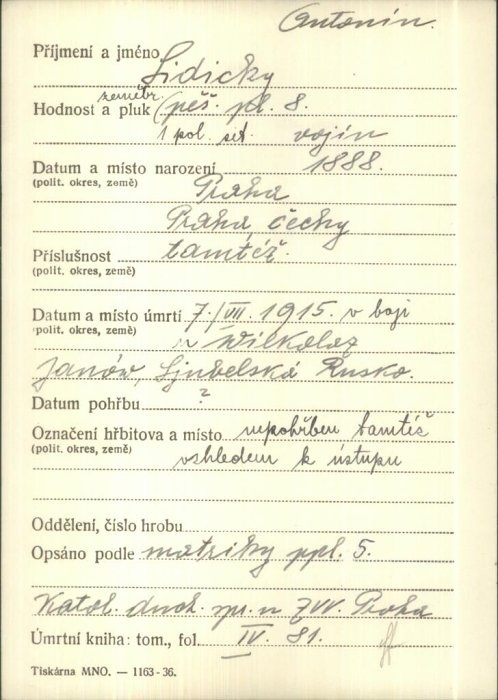 Antonín.
Příjmení a jméno Lidicky
zeměbr.
Hodnost a pluk (pěš. pl. 8.
1 pol. set. vojín
Datum a místo narození 1888.
(polit. okres, země) Praha
Praha, čechy
Příslušnost tamtéž.
(polit. okres, země)
Datum a místo úmrtí 7./VII. 1915. v boji
(polit. okres, země) u Wilkolaz
Janów, Ljubelská Rusko.
Datum pohřbu ?
Označení hřbitova a místo nepohřben tamtéž
(polit. okres, země) vzhledem k ústupu
Oddělení, číslo hrobu
Opsáno podle matriky ppl. 5.
Katol. duch. spr. u ZVV. Praha
Úmrtní kniha: tom., fol. IV. 81.
Tiskárna MNO. — 1163-36.